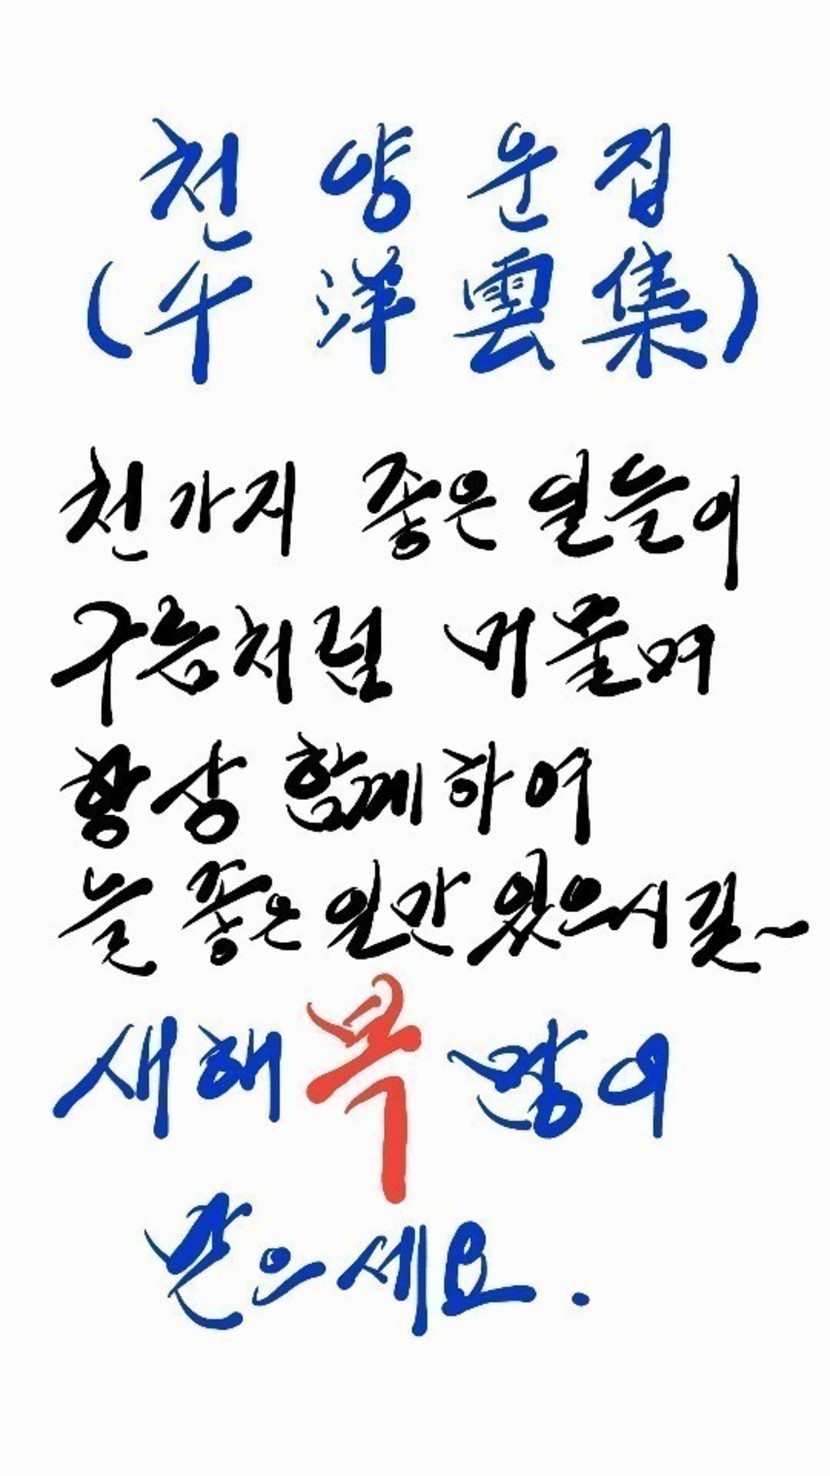 천양운집
(千洋雲集)
천가지 좋은 일들이
구름처럼 머물며
항상 함께하여
늘 좋은 일만 있으시길~
새해 복 많이
받으세요.